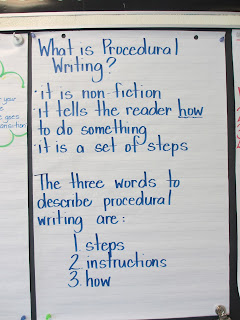 What is Procedural
Writing?
· it is non-fiction
· it tells the reader how
to do something
· it is a set of steps
The three words to
describe procedural
writing are:
1. steps
2. instructions
3. how
your
goes